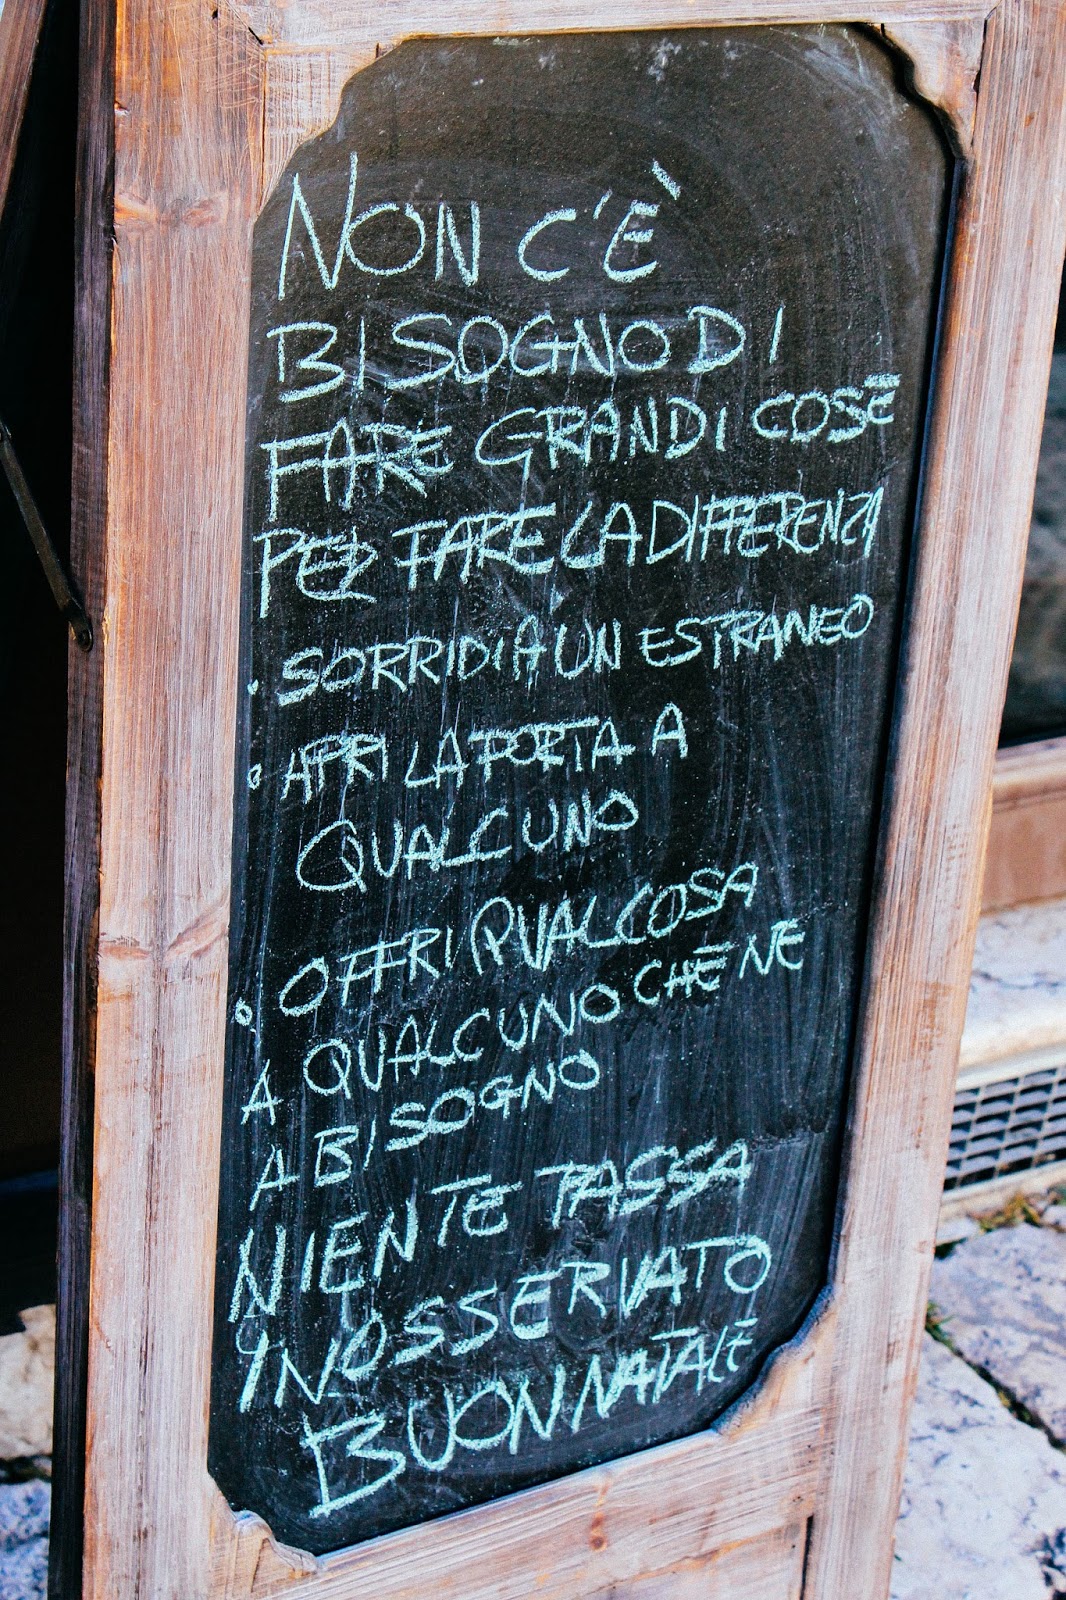 NON C'È
BISOGNO DI
FARE GRANDI COSE
PER FARE LA DIFFERENZA
• SORRIDI A UN ESTRANEO
• APRI LA PORTA A
QUALCUNO
• OFFRI QUALCOSA
A QUALCUNO CHE NE
A BISOGNO
NIENTE PASSA
INOSSERVATO
BUON NATALE